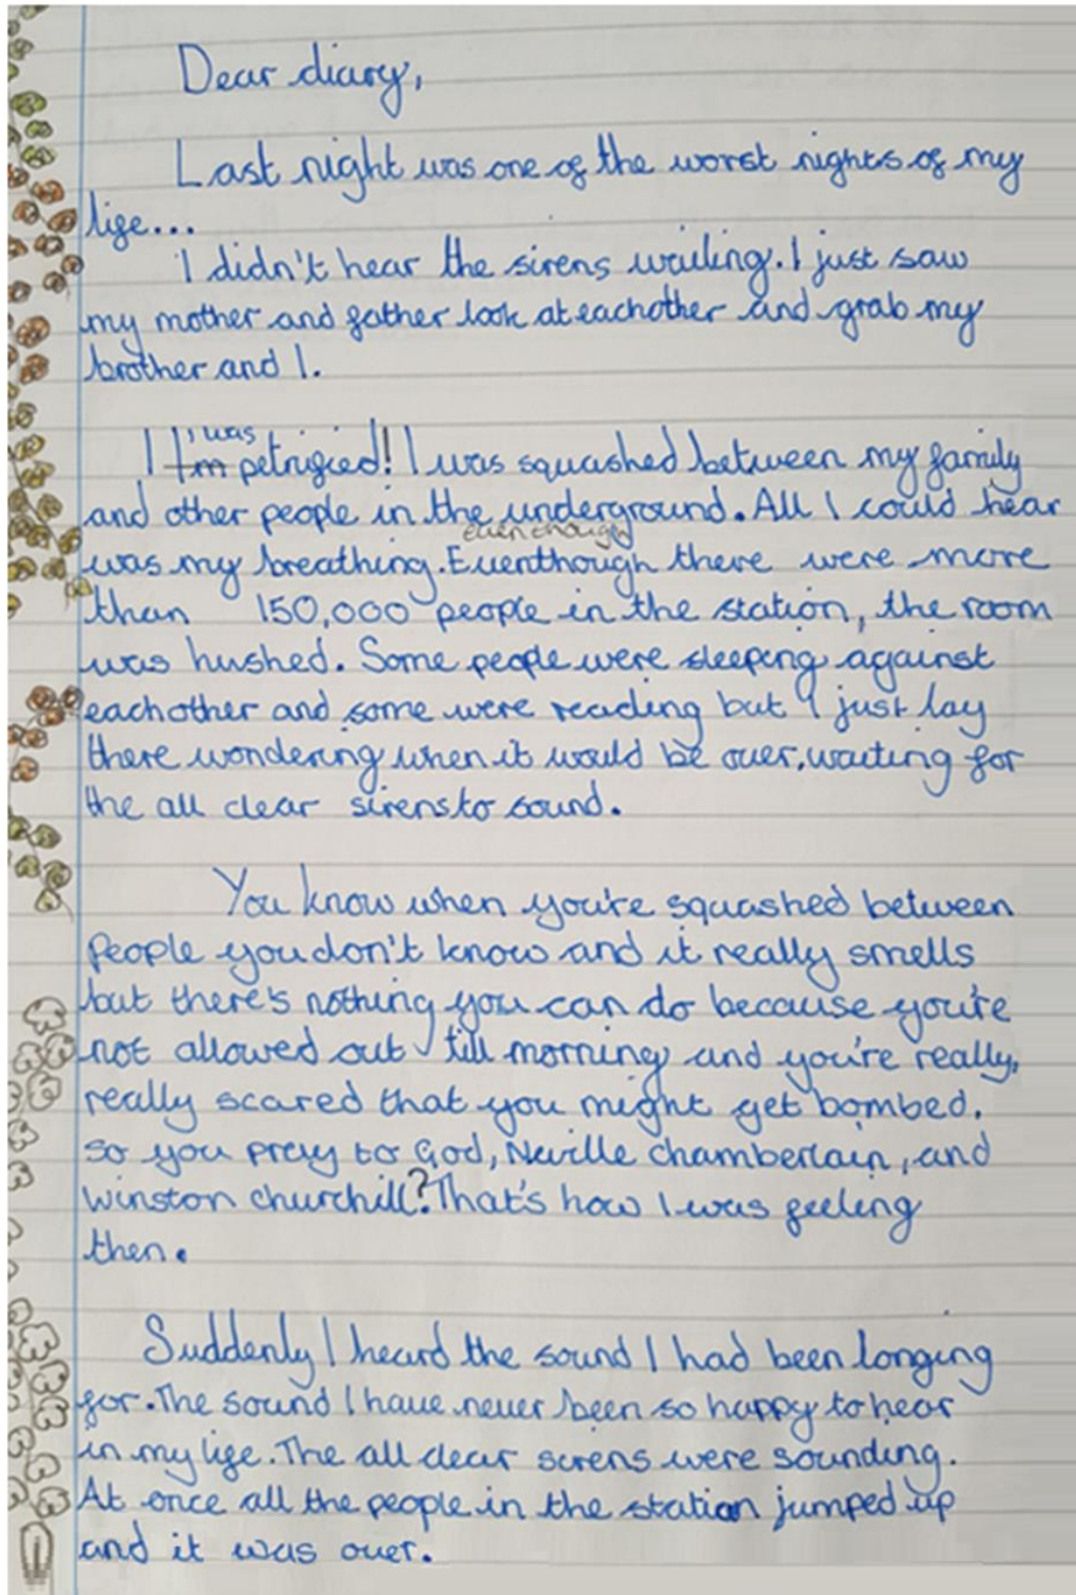 Dear diary,
Last night was one of the worst nights of my
life...
I didn't hear the sirens wailing. I just saw
my mother and father look at eachother and grab my
brother and I.
i was
I I'm petrified! I was squashed between my family
and other people in the underground. All I could hear
even though
was my breathing. Eventhough there were more
than 150,000 people in the station, the room
was hushed. Some people were sleeping against
eachother and some were reading but I just lay
there wondering when it would be over, waiting for
the all clear sirens to sound.
You know when you're squashed between
people you don't know and it really smells
but there's nothing you can do because you're
not allowed out till morning and you're really,
really scared that you might get bombed.
so you pray to God, Neville chamberlain, and
winston churchill? That's how I was feeling
then.
Suddenly I heard the sound I had been longing
for. The sound I have never been so happy to hear
in my life. The all clear sirens were sounding.
At once all the people in the station jumped up
and it was over.